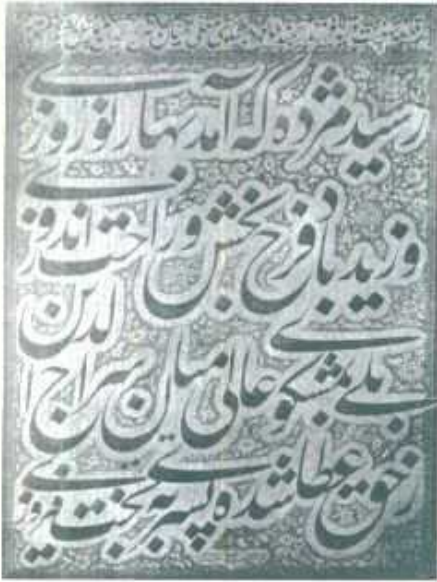 رسید مژده که آمد بهار نوروزی
وزید باد فرح بخش و راحت اندوزی
بلی بمشکوی عالی میان سراج الدین
ز حق عطا شده پسری به بخت فیروزی